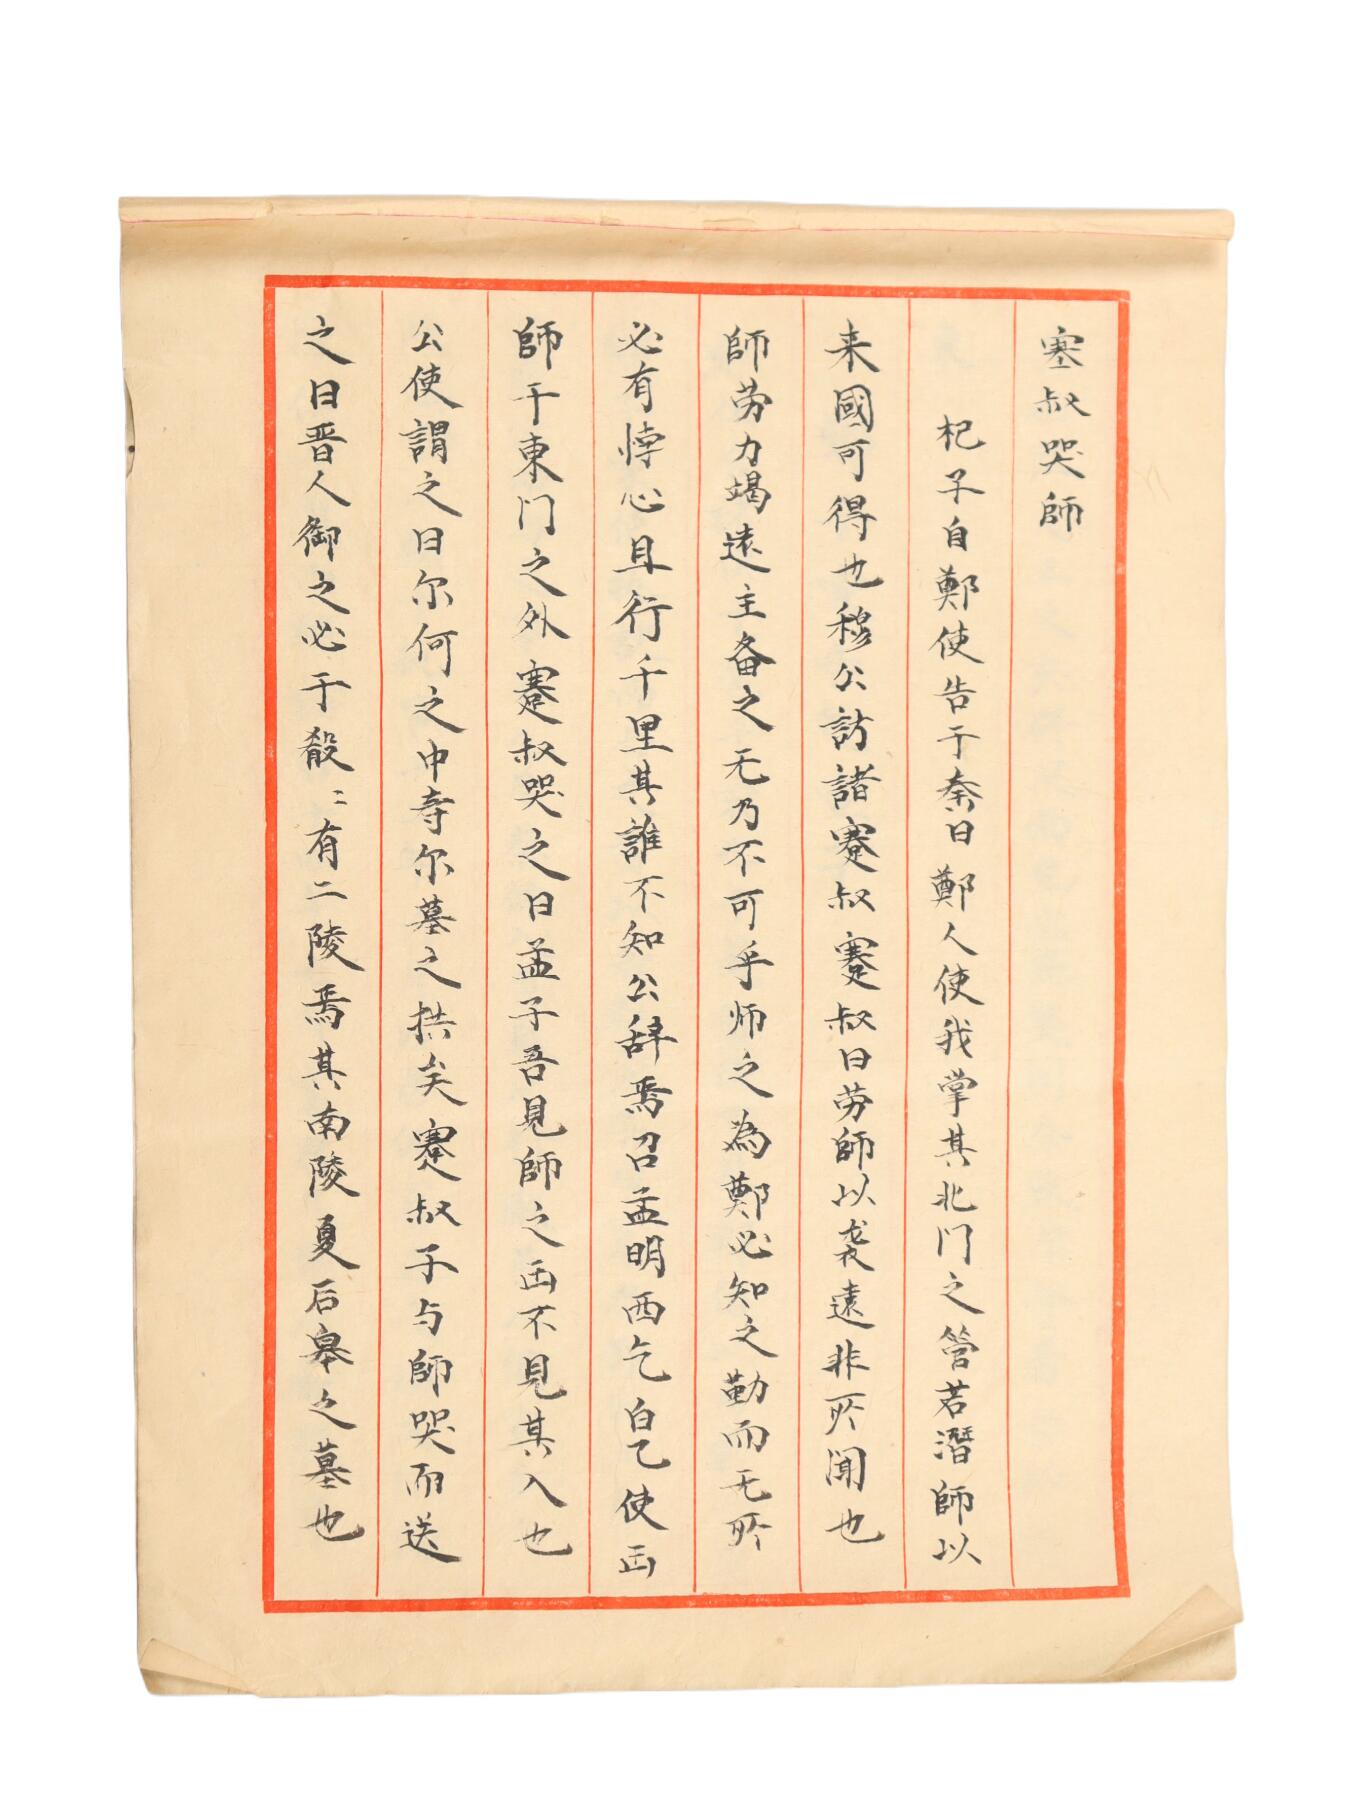 塞叔哭師
杞子自鄭使告于秦曰鄭人使我掌其北门之管若潛師以
来國可得也穆公訪諸蹇叔蹇叔曰劳師以袭遠非所闻也
師劳力竭遠主备之无乃不可乎师之為鄭必知之勤而无所
必有悖心且行千里其誰不知公辞焉召孟明西乞白乙使出
師于東门之外蹇叔哭之曰孟子吾見師之出不見其入也
公使謂之曰尔何之中寿尔墓之拱矣蹇叔子与師哭而送
之曰晋人御之必于殽〻有二陵焉其南陵夏后皋之墓也